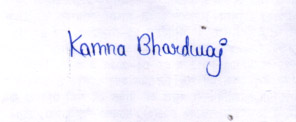 Kamna Bhardwaj